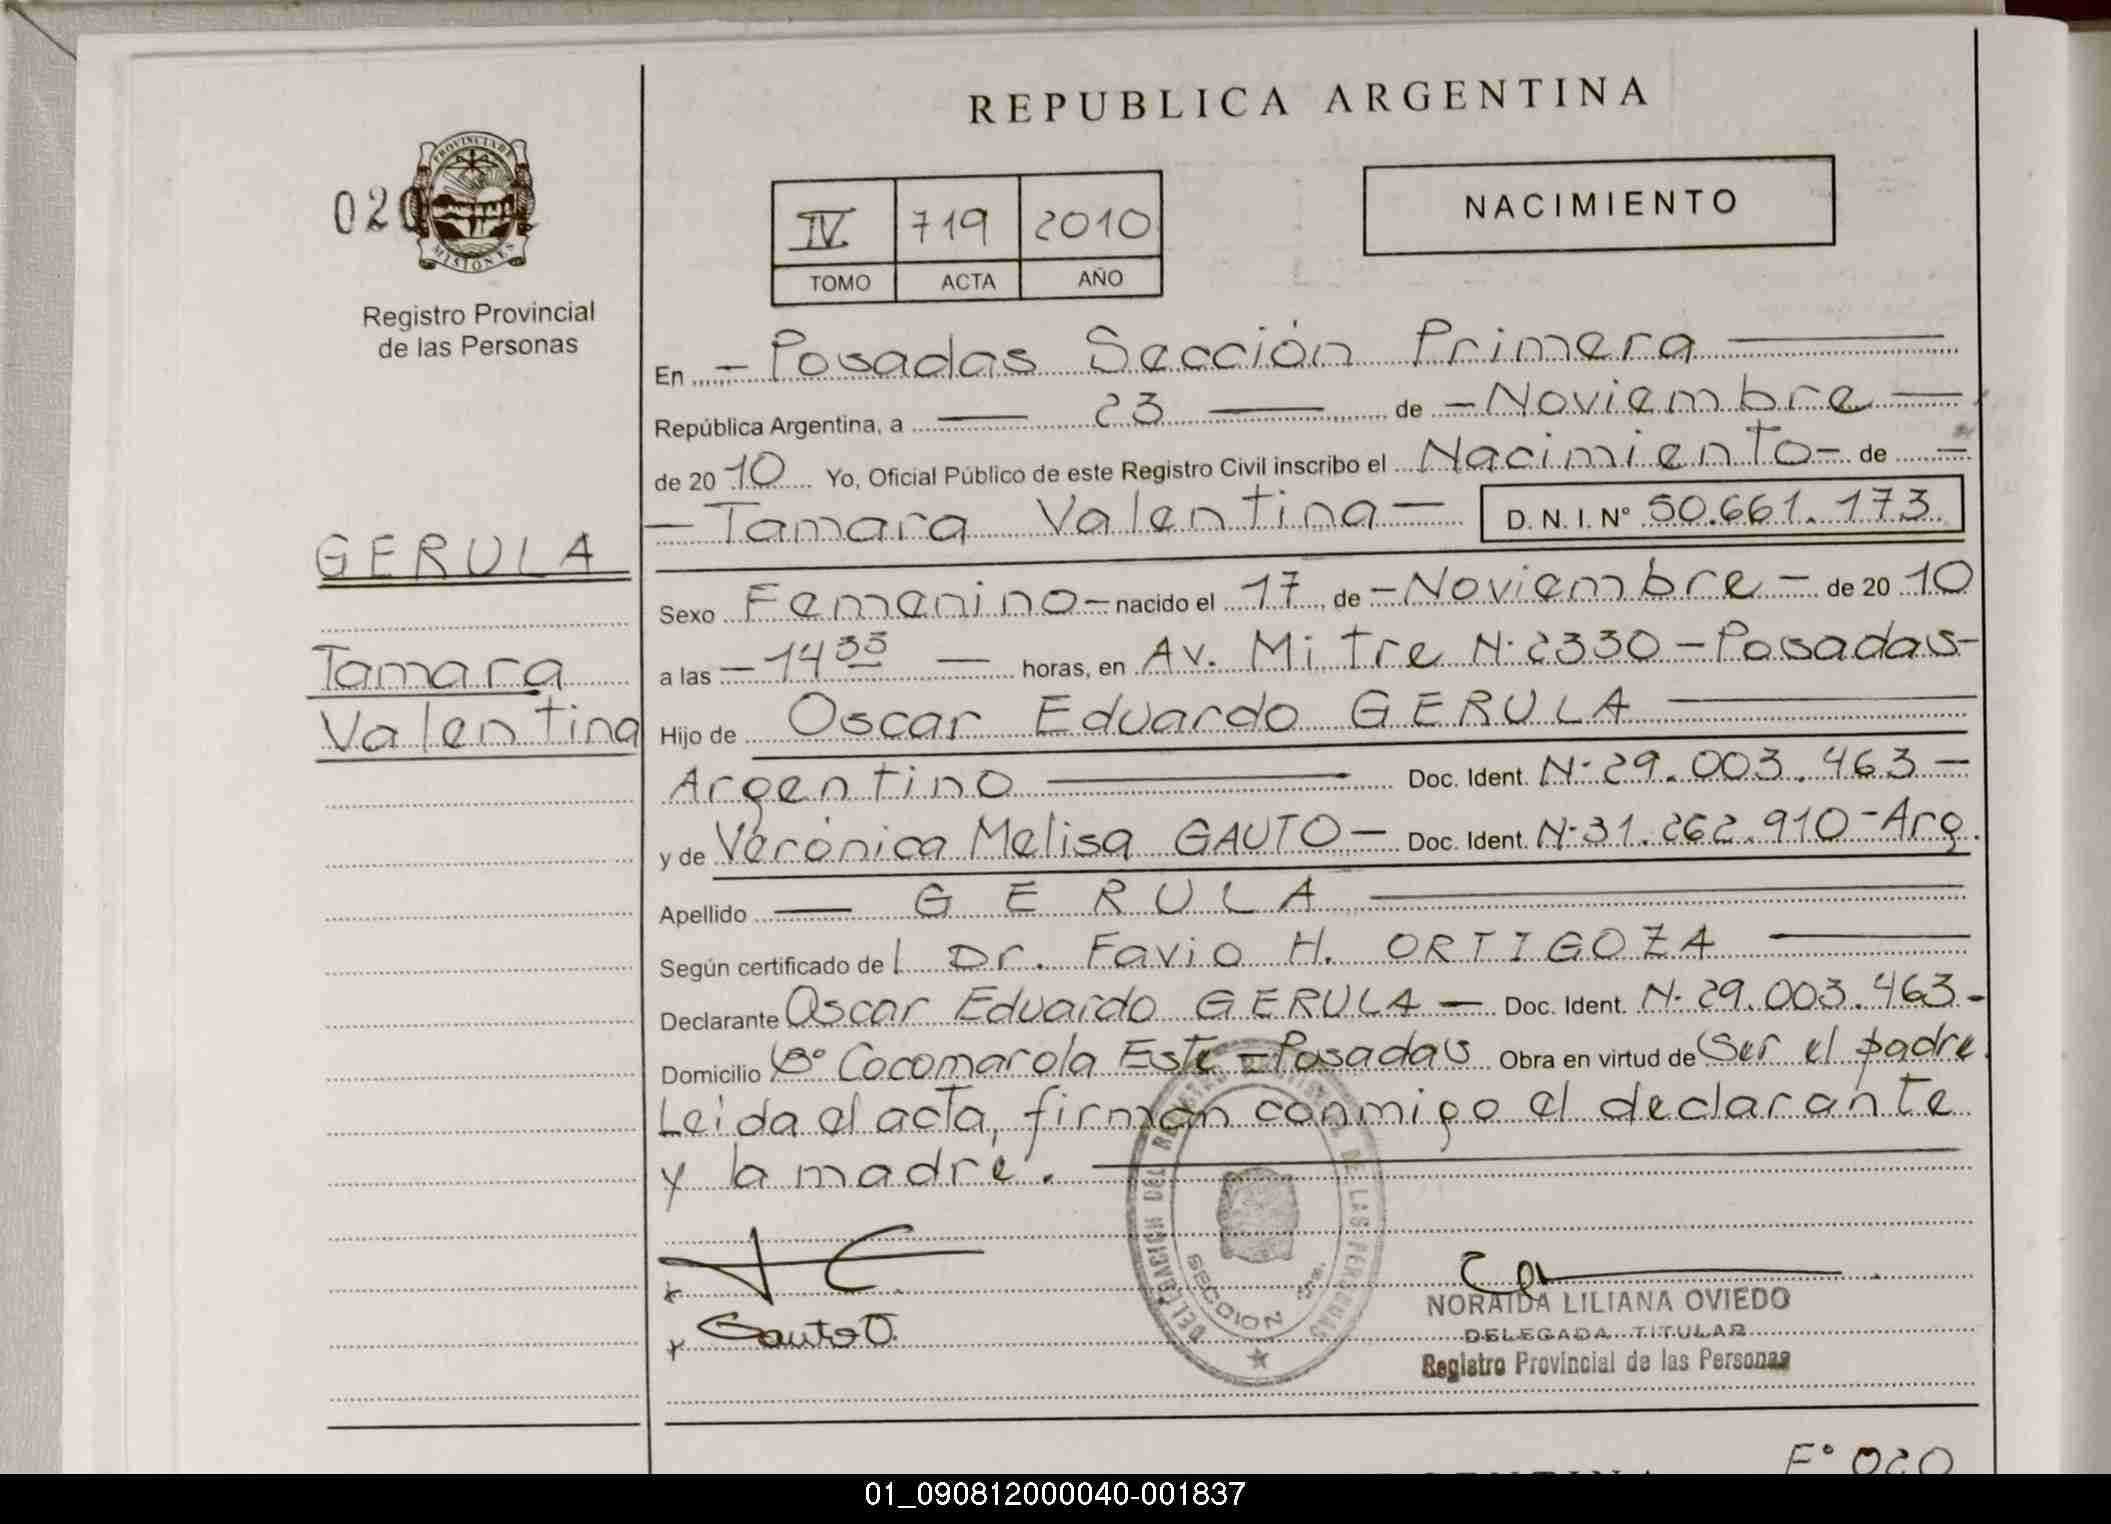 REPUBLICA ARGENTINA
020
PROVINCIA DE
MISIONES
Registro Provincial
de las Personas
IV 719 2010
TOMO ACTA AÑO
NACIMIENTO
En - Posadas Sección Primera
República Argentina, a 23 de - Noviembre
de 20 10 Yo, Oficial Público de este Registro Civil inscribo el Nacimiento - de -
- Tamara Valentina - D. N. I. N° 50.661.173
GERULA
Tamara
Valentina
Sexo Femenino - nacido el 17 de - Noviembre - de 20 10
a las - 14 35 - horas, en Av. Mitre N° 2330 - Posadas -
Hijo de Oscar Eduardo GERULA
Argentino Doc. Ident. N° 29.003.463 -
y de Verónica Melisa GAUTO - Doc. Ident. N° 31.262.910 - Arg.
Apellido - GERULA
Según certificado del Dr. Favio H. ORTIGOZA
Declarante Oscar Eduardo GERULA - Doc. Ident. N° 29.003.463 -
Domicilio B° Cocomarola Este - Posadas Obra en virtud de Ser el padre.
Leida el acta, firman conmigo el declarante
y la madre.
DELEGACION DEL REGISTRO DE LAS PERSONAS
SECCION 1ª
x
x Gauto V.
NORAIDA LILIANA OVIEDO
DELEGADA TITULAR
Registro Provincial de las Personas
F° 020
01_090812000040-001837